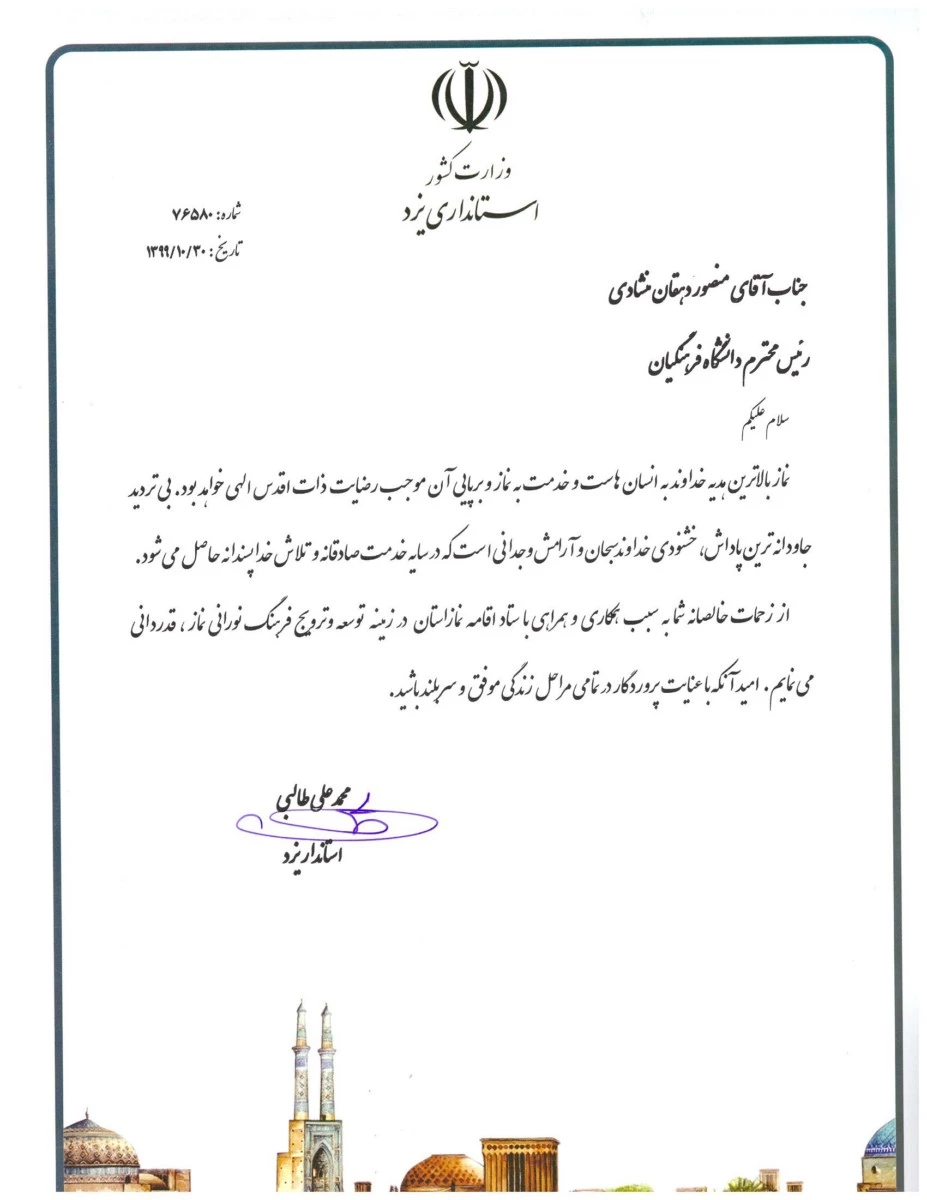 وزارت کشور
استانداری یزد
شماره: ۷۶۵۸۰
تاریخ: ۱۳۹۹/۱۰/۳۰
جناب آقای منصور دهقان منشادی
رئیس محترم دانشگاه فرهنگیان
سلام علیکم
نماز بالاترین هدیه خداوند به انسان هاست و خدمت به نماز و برپایی آن موجب رضایت ذات اقدس الهی خواهد بود. بی تردید
جاودانه ترین پاداش، خشنودی خداوند سبحان و آرامش وجدانی است که در سایه خدمت صادقانه و تلاش خداپسندانه حاصل می شود.
از زحمات خالصانه شما به سبب همکاری و همراهی با ستاد اقامه نماز استان در زمینه توسعه وترویج فرهنگ نورانی نماز، قدردانی
می نمایم. امید آنکه با عنایت پروردگار در تمامی مراحل زندگی موفق و سربلند باشید.
محمد علی طالبی
استاندار یزد